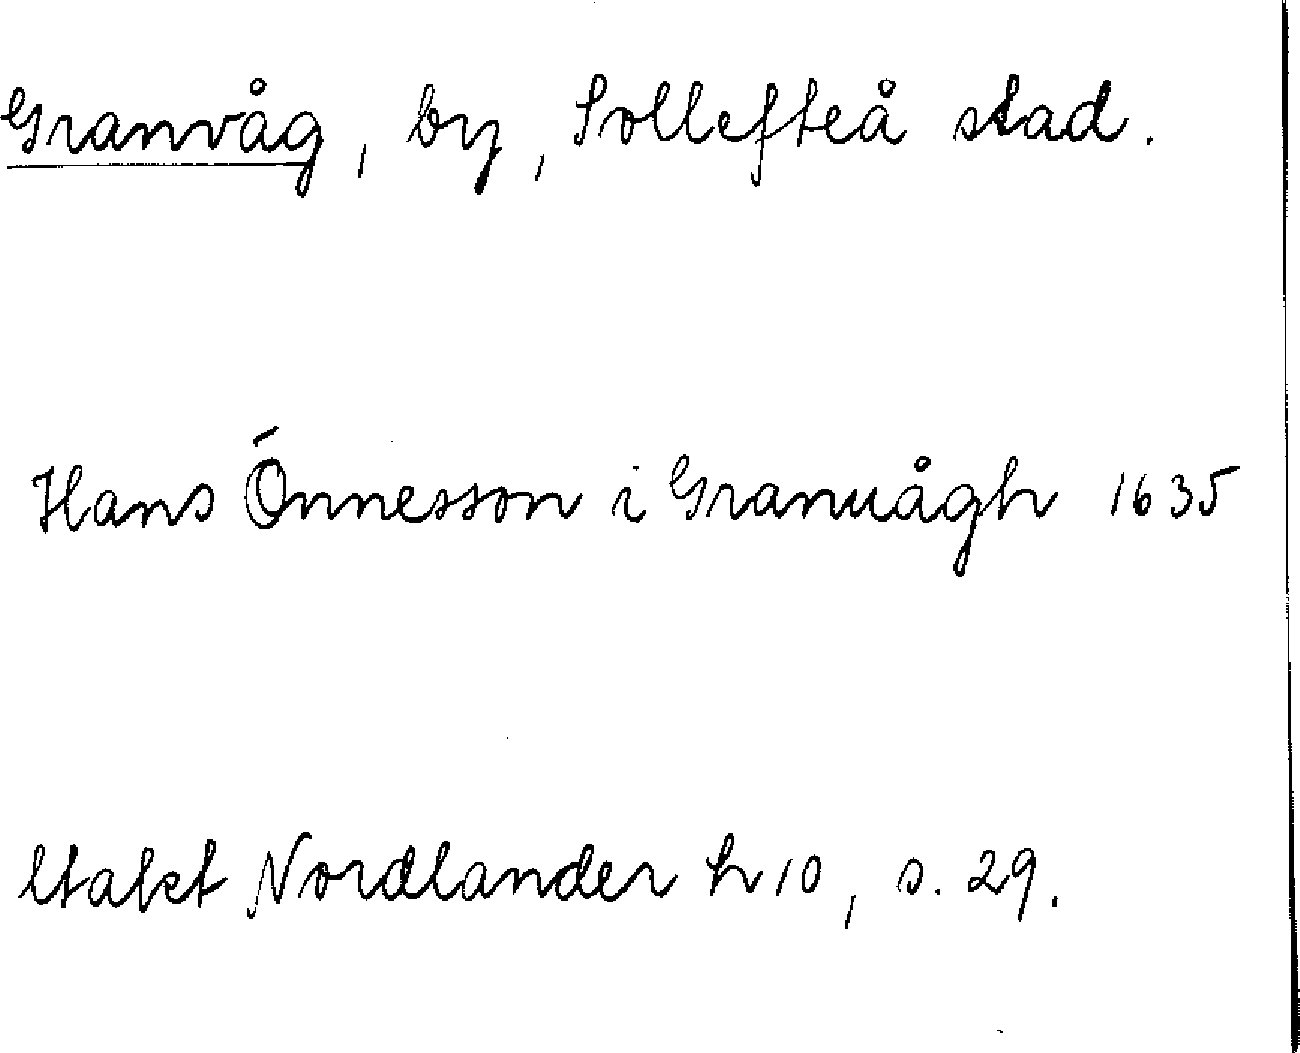 Granvåg, by, Sollefteå stad.
Hans Ónnesson i Granuågh 1635
Nordlander h 10, s. 29.